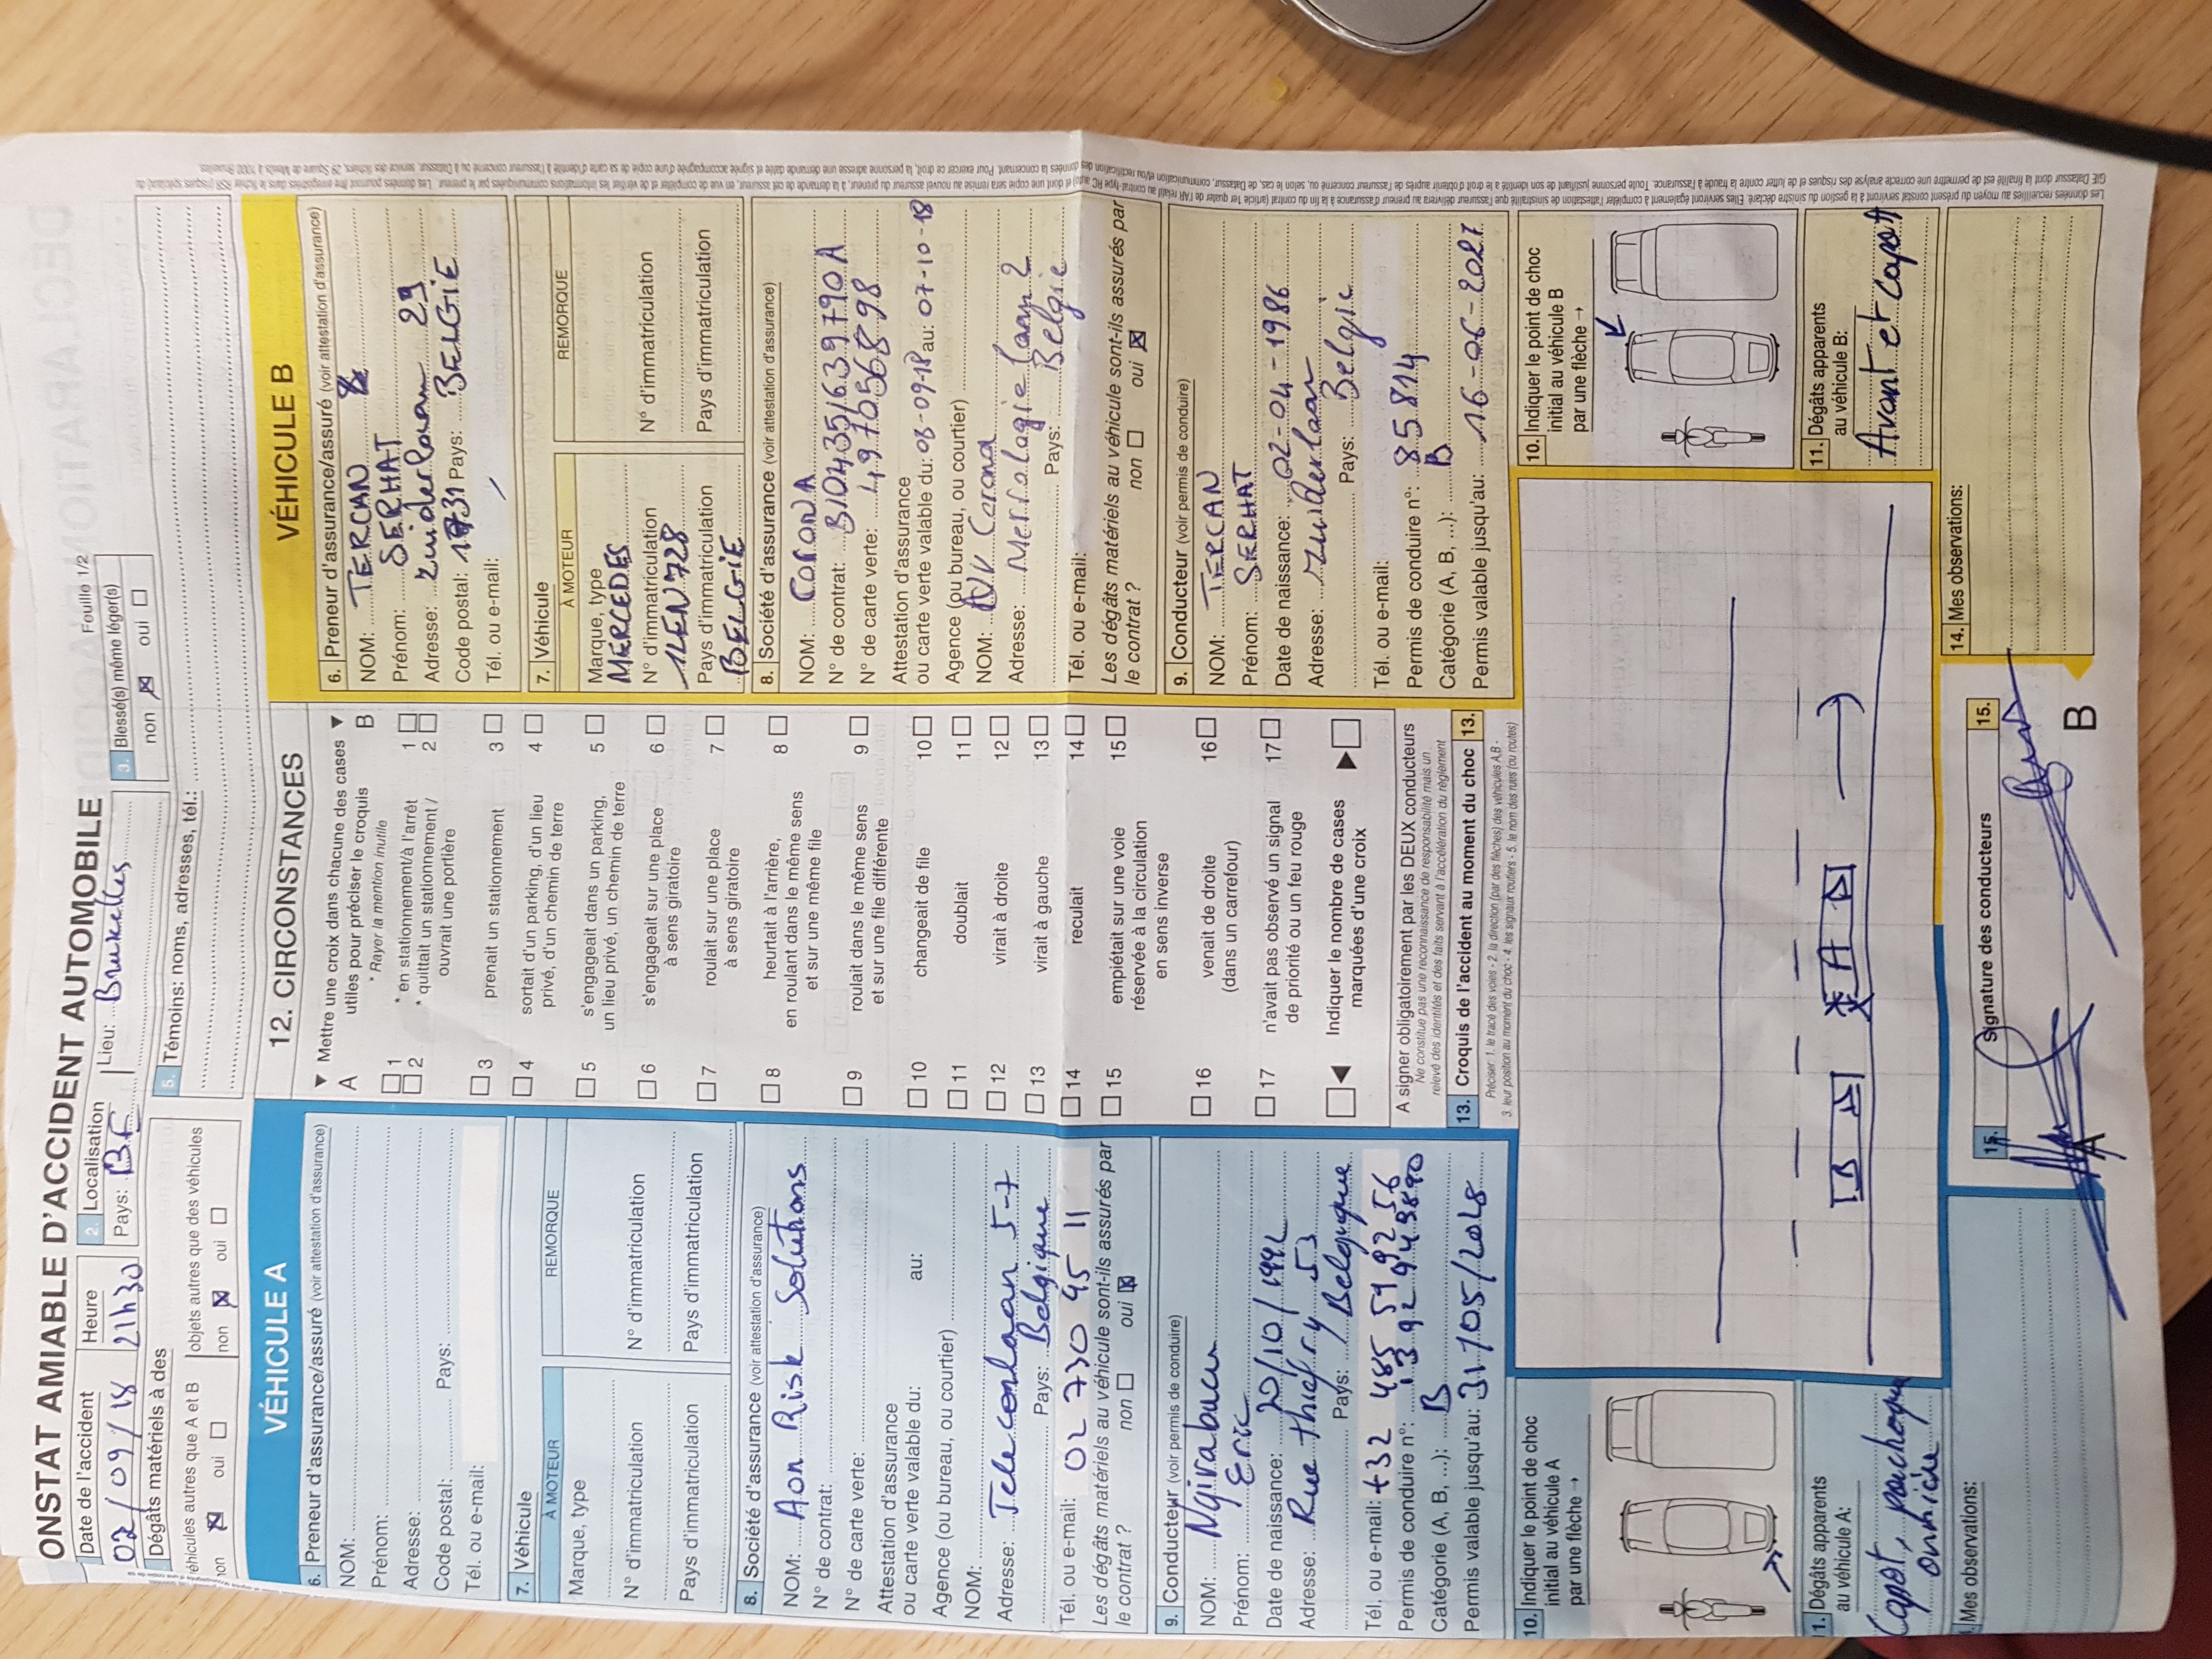 ONSTAT AMIABLE D'ACCIDENT AUTOMOBILE
Feuille 1/2
Date de l'accident
02/09/18
Heure
21h30
2. Localisation
Pays: BE
Lieu: Bruxelles
3. Blessé(s) même léger(s)
non oui
Dégâts matériels à des
éhicules autres que A et B
non oui
objets autres que des véhicules
non oui
5. Témoins: noms, adresses, tél.:
VÉHICULE A
6. Preneur d'assurance/assuré (voir attestation d'assurance)
NOM:
Prénom:
Adresse:
Code postal: Pays:
Tél. ou e-mail:
7. Véhicule
À MOTEUR
Marque, type
N° d'immatriculation
Pays d'immatriculation
REMORQUE
N° d'immatriculation
Pays d'immatriculation
8. Société d'assurance (voir attestation d'assurance)
NOM: Aon Risk Solutions
N° de contrat:
N° de carte verte:
Attestation d'assurance
ou carte verte valable du: au:
Agence (ou bureau, ou courtier)
NOM:
Adresse: Teleconlaan 5-7
Pays: Belgique
Tél. ou e-mail: 02 730 95 11
Les dégâts matériels au véhicule sont-ils assurés par
le contrat ? non oui
9. Conducteur (voir permis de conduire)
NOM:
Prénom: Eric
Date de naissance: 20/10/1992
Adresse: Rue thiefry 53
Pays: Belgique
Tél. ou e-mail: +32 485 51 92 56
Permis de conduire n°:
Catégorie (A, B, ...): B
Permis valable jusqu'au: 31/05/2028
10. Indiquer le point de choc
initial au véhicule A
par une flèche →
1. Dégâts apparents
au véhicule A:
Capot,
Mes observations:
12. CIRCONSTANCES
Mettre une croix dans chacune des cases
A utiles pour préciser le croquis B
* Rayer la mention inutile
1 * en stationnement/à l'arrêt 1
2 * quittait un stationnement / 2
ouvrait une portière
3 prenait un stationnement 3
4 sortait d'un parking, d'un lieu 4
privé, d'un chemin de terre
5 s'engageait dans un parking, 5
un lieu privé, un chemin de terre
6 s'engageait sur une place 6
à sens giratoire
7 roulait sur une place 7
à sens giratoire
8 heurtait à l'arrière, 8
en roulant dans le même sens
et sur une même file
9 roulait dans le même sens 9
et sur une file différente
10 changeait de file 10
11 doublait 11
12 virait à droite 12
13 virait à gauche 13
14 reculait 14
15 empiétait sur une voie 15
réservée à la circulation
en sens inverse
16 venait de droite 16
(dans un carrefour)
17 n'avait pas observé un signal 17
de priorité ou un feu rouge
Indiquer le nombre de cases
marquées d'une croix
A signer obligatoirement par les DEUX conducteurs
Ne constitue pas une reconnaissance de responsabilité mais un
relevé des identités et des faits servant à l'accélération du règlement
13. Croquis de l'accident au moment du choc 13.
Préciser: 1. le tracé des voies - 2. la direction (par des flèches) des véhicules A,B -
3. leur position au moment du choc - 4. les signaux routiers - 5. le nom des rues (ou routes)
B A
15. Signature des conducteurs 15.
A B
VÉHICULE B
6. Preneur d'assurance/assuré (voir attestation d'assurance)
NOM: TERCAN
Prénom: SERHAT
Adresse: Zuiderlaan 29
Code postal: 1731 Pays: BELGIE
Tél. ou e-mail: /
7. Véhicule
À MOTEUR
Marque, type
MERCEDES
N° d'immatriculation
1LEN728
Pays d'immatriculation
BELGIE
REMORQUE
N° d'immatriculation
Pays d'immatriculation
8. Société d'assurance (voir attestation d'assurance)
NOM: CORONA
N° de contrat: B/0435/639790A
N° de carte verte: 497056898
Attestation d'assurance
ou carte verte valable du: 08-09-18 au: 07-10-18
Agence (ou bureau, ou courtier)
NOM: NV Corona
Adresse: Metrologielaan 2
Pays: Belgie
Tél. ou e-mail:
Les dégâts matériels au véhicule sont-ils assurés par
le contrat ? non oui
9. Conducteur (voir permis de conduire)
NOM: TERCAN
Prénom: SERHAT
Date de naissance: 02-04-1986
Adresse: Zuiderlaan
Pays: Belgie
Tél. ou e-mail:
Permis de conduire n°: 85814
Catégorie (A, B, ...): B
Permis valable jusqu'au: 16-06-2027
10. Indiquer le point de choc
initial au véhicule B
par une flèche →
11. Dégâts apparents
au véhicule B:
Avant et capot
14. Mes observations: